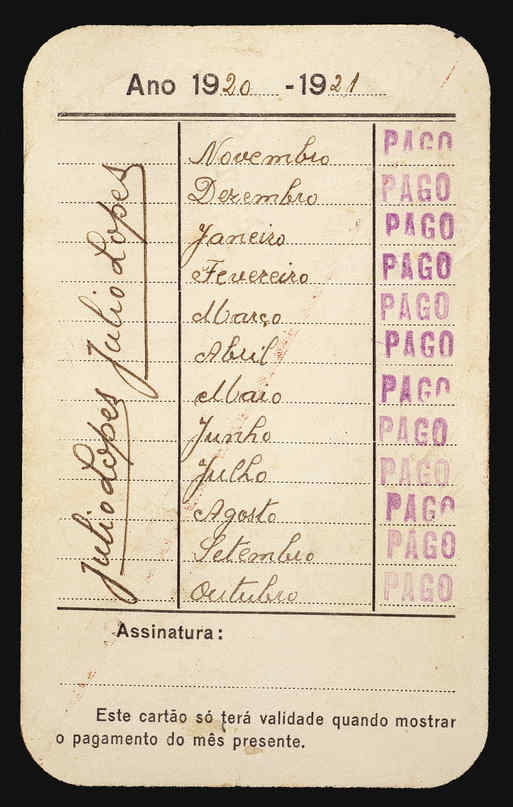 Ano 1920 - 1921
Novembro PAGO
Dezembro PAGO
Janeiro PAGO
Fevereiro PAGO
Março PAGO
Abril PAGO
Maio PAGO
Junho PAGO
Julho PAGO
Agosto PAGO
Setembro PAGO
Outubro PAGO
Julio Lopes
Julio Lopes
Assinatura:
Este cartão só terá validade quando mostrar
o pagamento do mês presente.